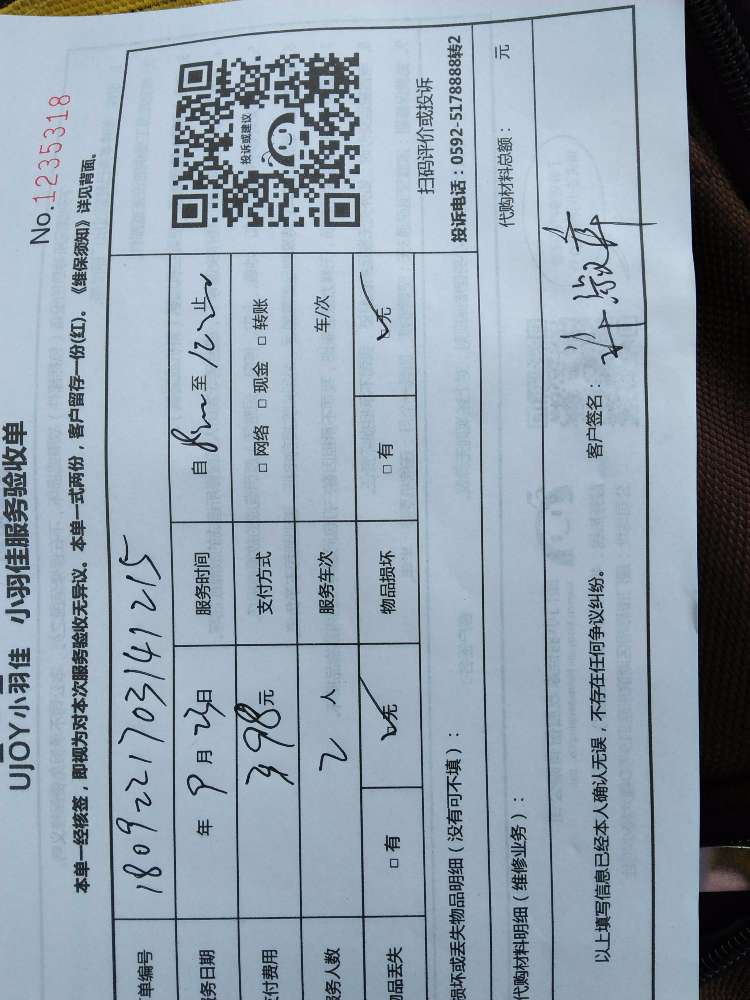 No.1235318
UJOY小羽佳 小羽佳服务验收单
本单一经核签，即视为对本次服务验收无异议。本单一式两份，客户留存一份(红)。《维保须知》详见背面。
单编号 1809221703141215
务日期 年 9 月 23 日 服务时间 自 8 至 12 止
付费用 398 元 支付方式 □ 网络 □ 现金 □ 转账
务人数 2 人 服务车次 车/次
物品丢失 □ 有 ☑ 无 物品损坏 □ 有 ☑ 无
投诉或建议
扫码评价或投诉
投诉电话：0592-5178888转2
损坏或丢失物品明细（没有可不填）：
代购材料明细（维修业务）： 代购材料总额： 元
以上填写信息已经本人确认无误，不存在任何争议纠纷。 客户签名：